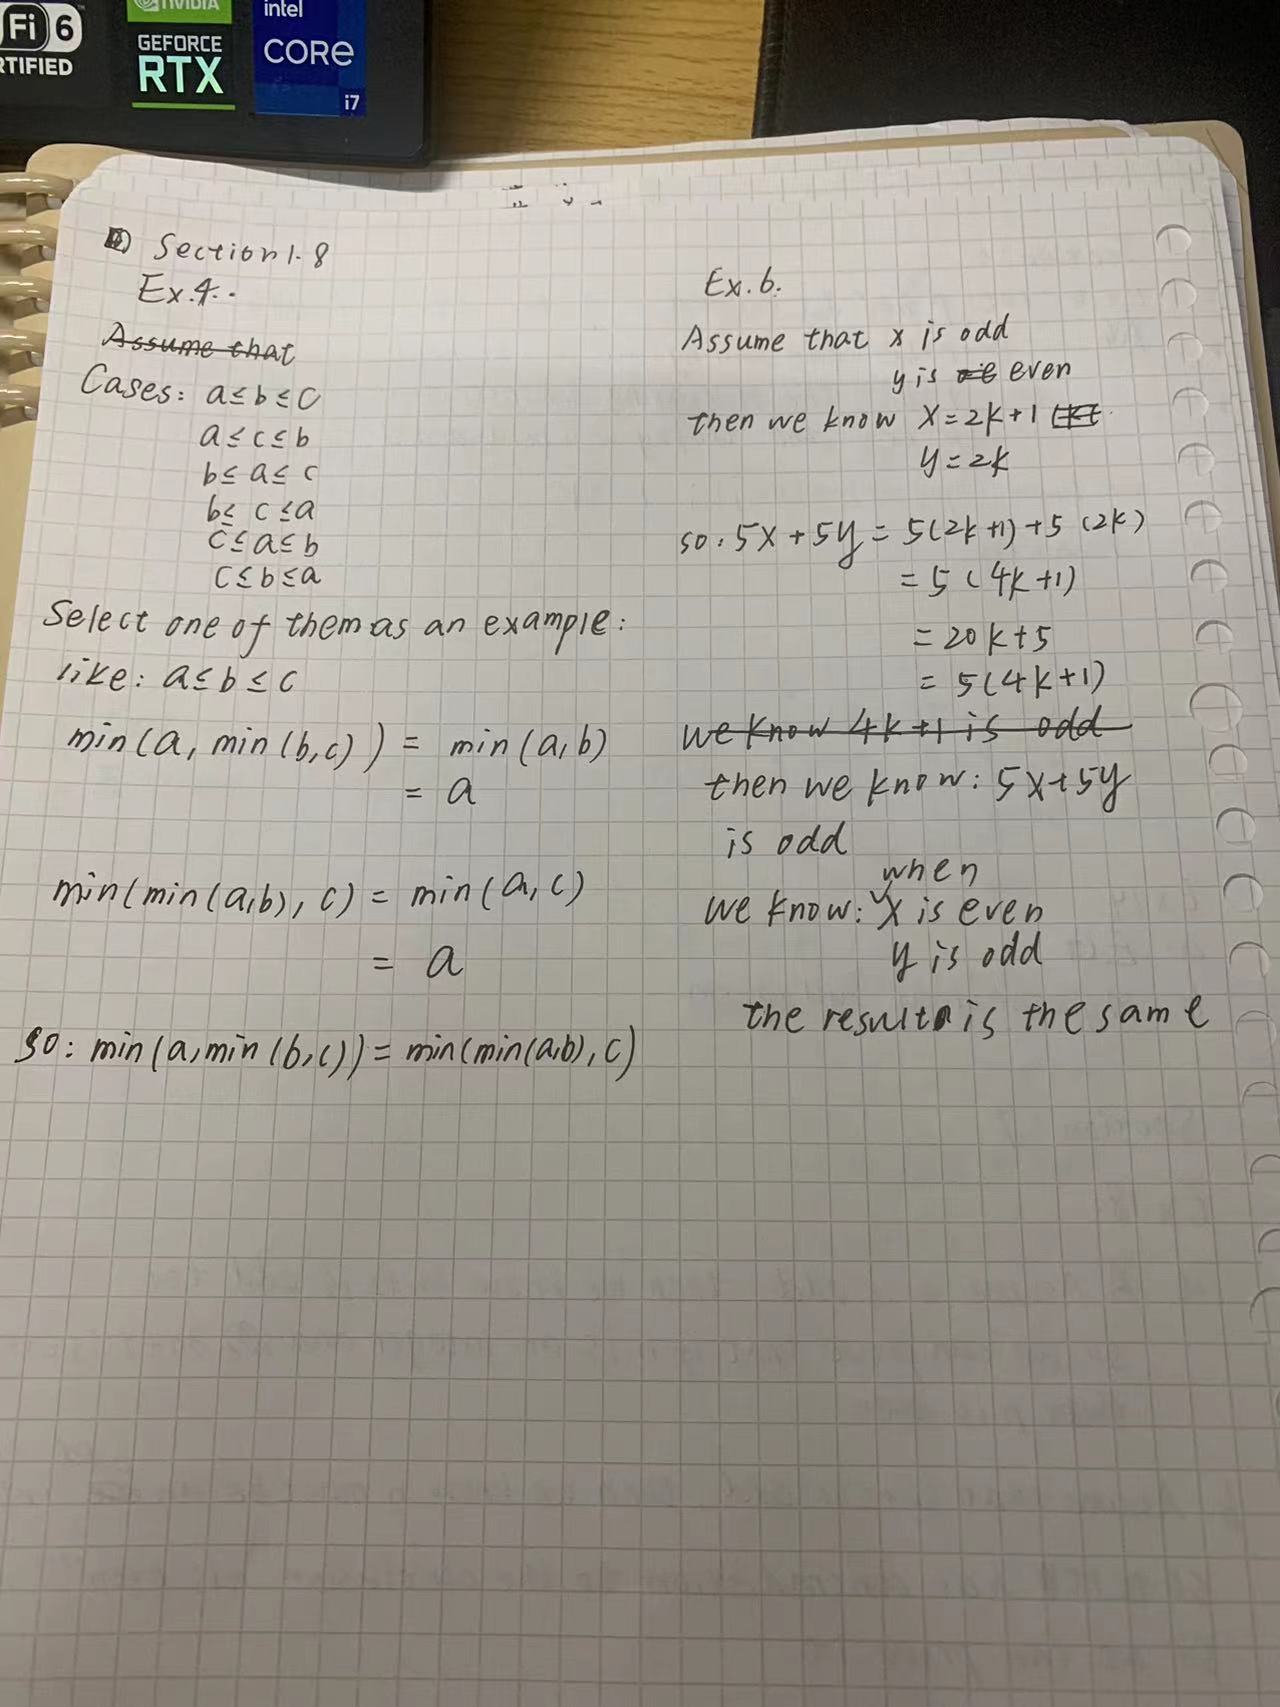 Fi 6
RTIFIED
NVIDIA
GEFORCE
RTX
intel
CORE
i7
Section 1.8
Ex.4.
Assume that
Cases: a≤b≤c
a≤c≤b
b≤a≤c
b≤c≤a
c≤a≤b
c≤b≤a
Select one of them as an example:
like: a≤b≤c
min(a, min(b,c)) = min(a,b)
= a
min(min(a,b), c) = min(a,c)
= a
so: min(a,min(b,c)) = min(min(a,b),c)
Ex.6.
Assume that x is odd
y is even
then we know x=2k+1
y=2k
so: 5x+5y = 5(2k+1)+5(2k)
= 5(4k+1)
= 20k+5
= 5(4k+1)
we know 4k+1 is odd
then we know: 5x+5y
is odd
when
we know: x is even
y is odd
the result is the same